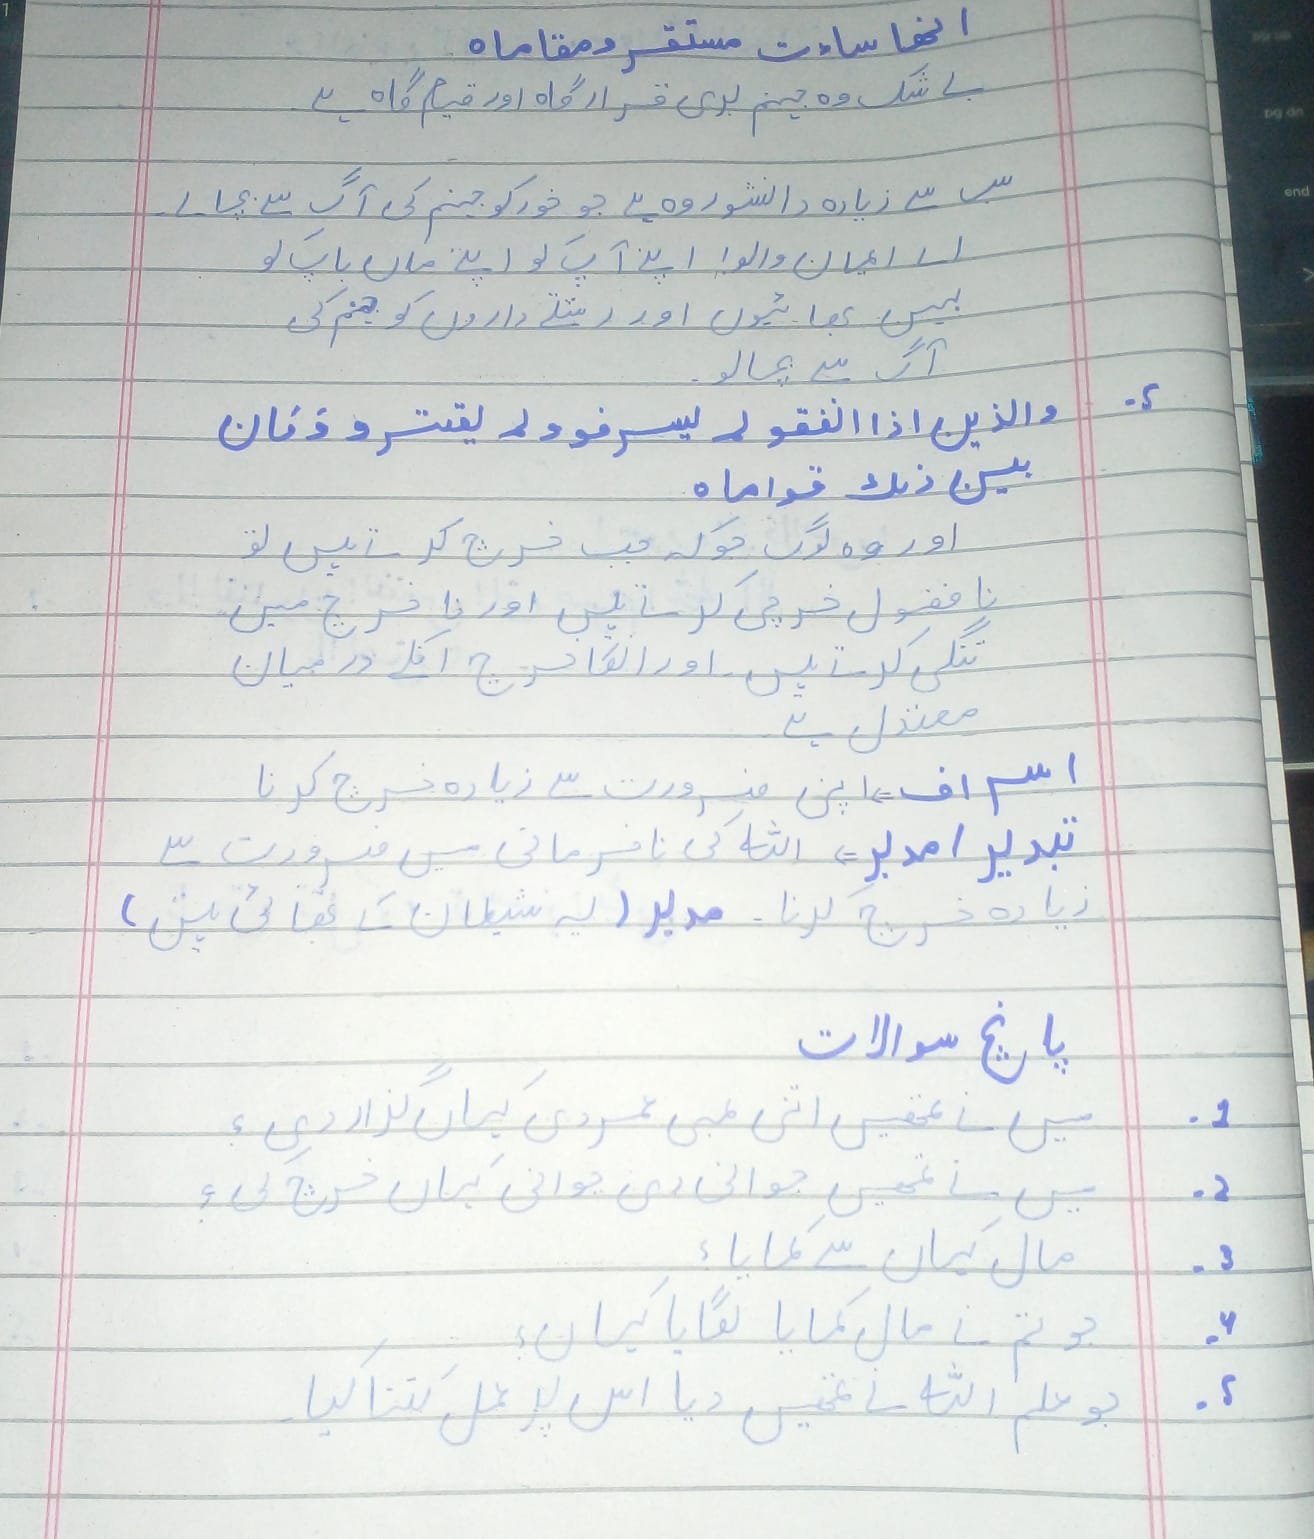 انھا ساءت مستقر ومقاماہ
بے شک وہ جہنم بری قرار گاہ اور قیام گاہ ہے
سب سے زیادہ دانشور وہ ہے جو خود کو جہنم کی آگ سے بچا لے۔
اے ایمان والوں اپنے آپ کو اپنے ماں باپ کو
بہین بھائیوں اور رشتے داروں کو جہنم کی
آگ سے بچا لو۔
۵۔ والذین اذا انفقو لم یسرفو ولم یقتر و وکان
بین ذلک قواماہ
اور وہ لوگ جوکہ جب خرچ کرتے ہیں تو
نا فضول خرچی کرتے ہیں اور نا خرچ میں
تنگی کرتے ہیں۔ اور انکا خرچ انکے درمیان
معتدل ہے
اسراف => اپنی ضرورت سے زیادہ خرچ کرنا
تبدیر / مدبر => اللہ کی نافرمانی میں ضرورت سے
زیادہ خرچ کرنا۔ مدبر (یہ شیطان کے بھائی ہیں)
پانچ سوالات
1۔ میں نے تمھیں اتنی لمبی عمر دی کہاں گزار دی؟
2۔ میں نے تمھیں جوانی دی جوانی کہاں خرچ کی؟
3۔ مال کہاں سے کمایا؟
4۔ جو تم نے مال کمایا لگایا کہاں؟
۵۔ جو علم اللہ نے تمھیں دیا اس پر عمل کتنا کیا۔
pg dn
end